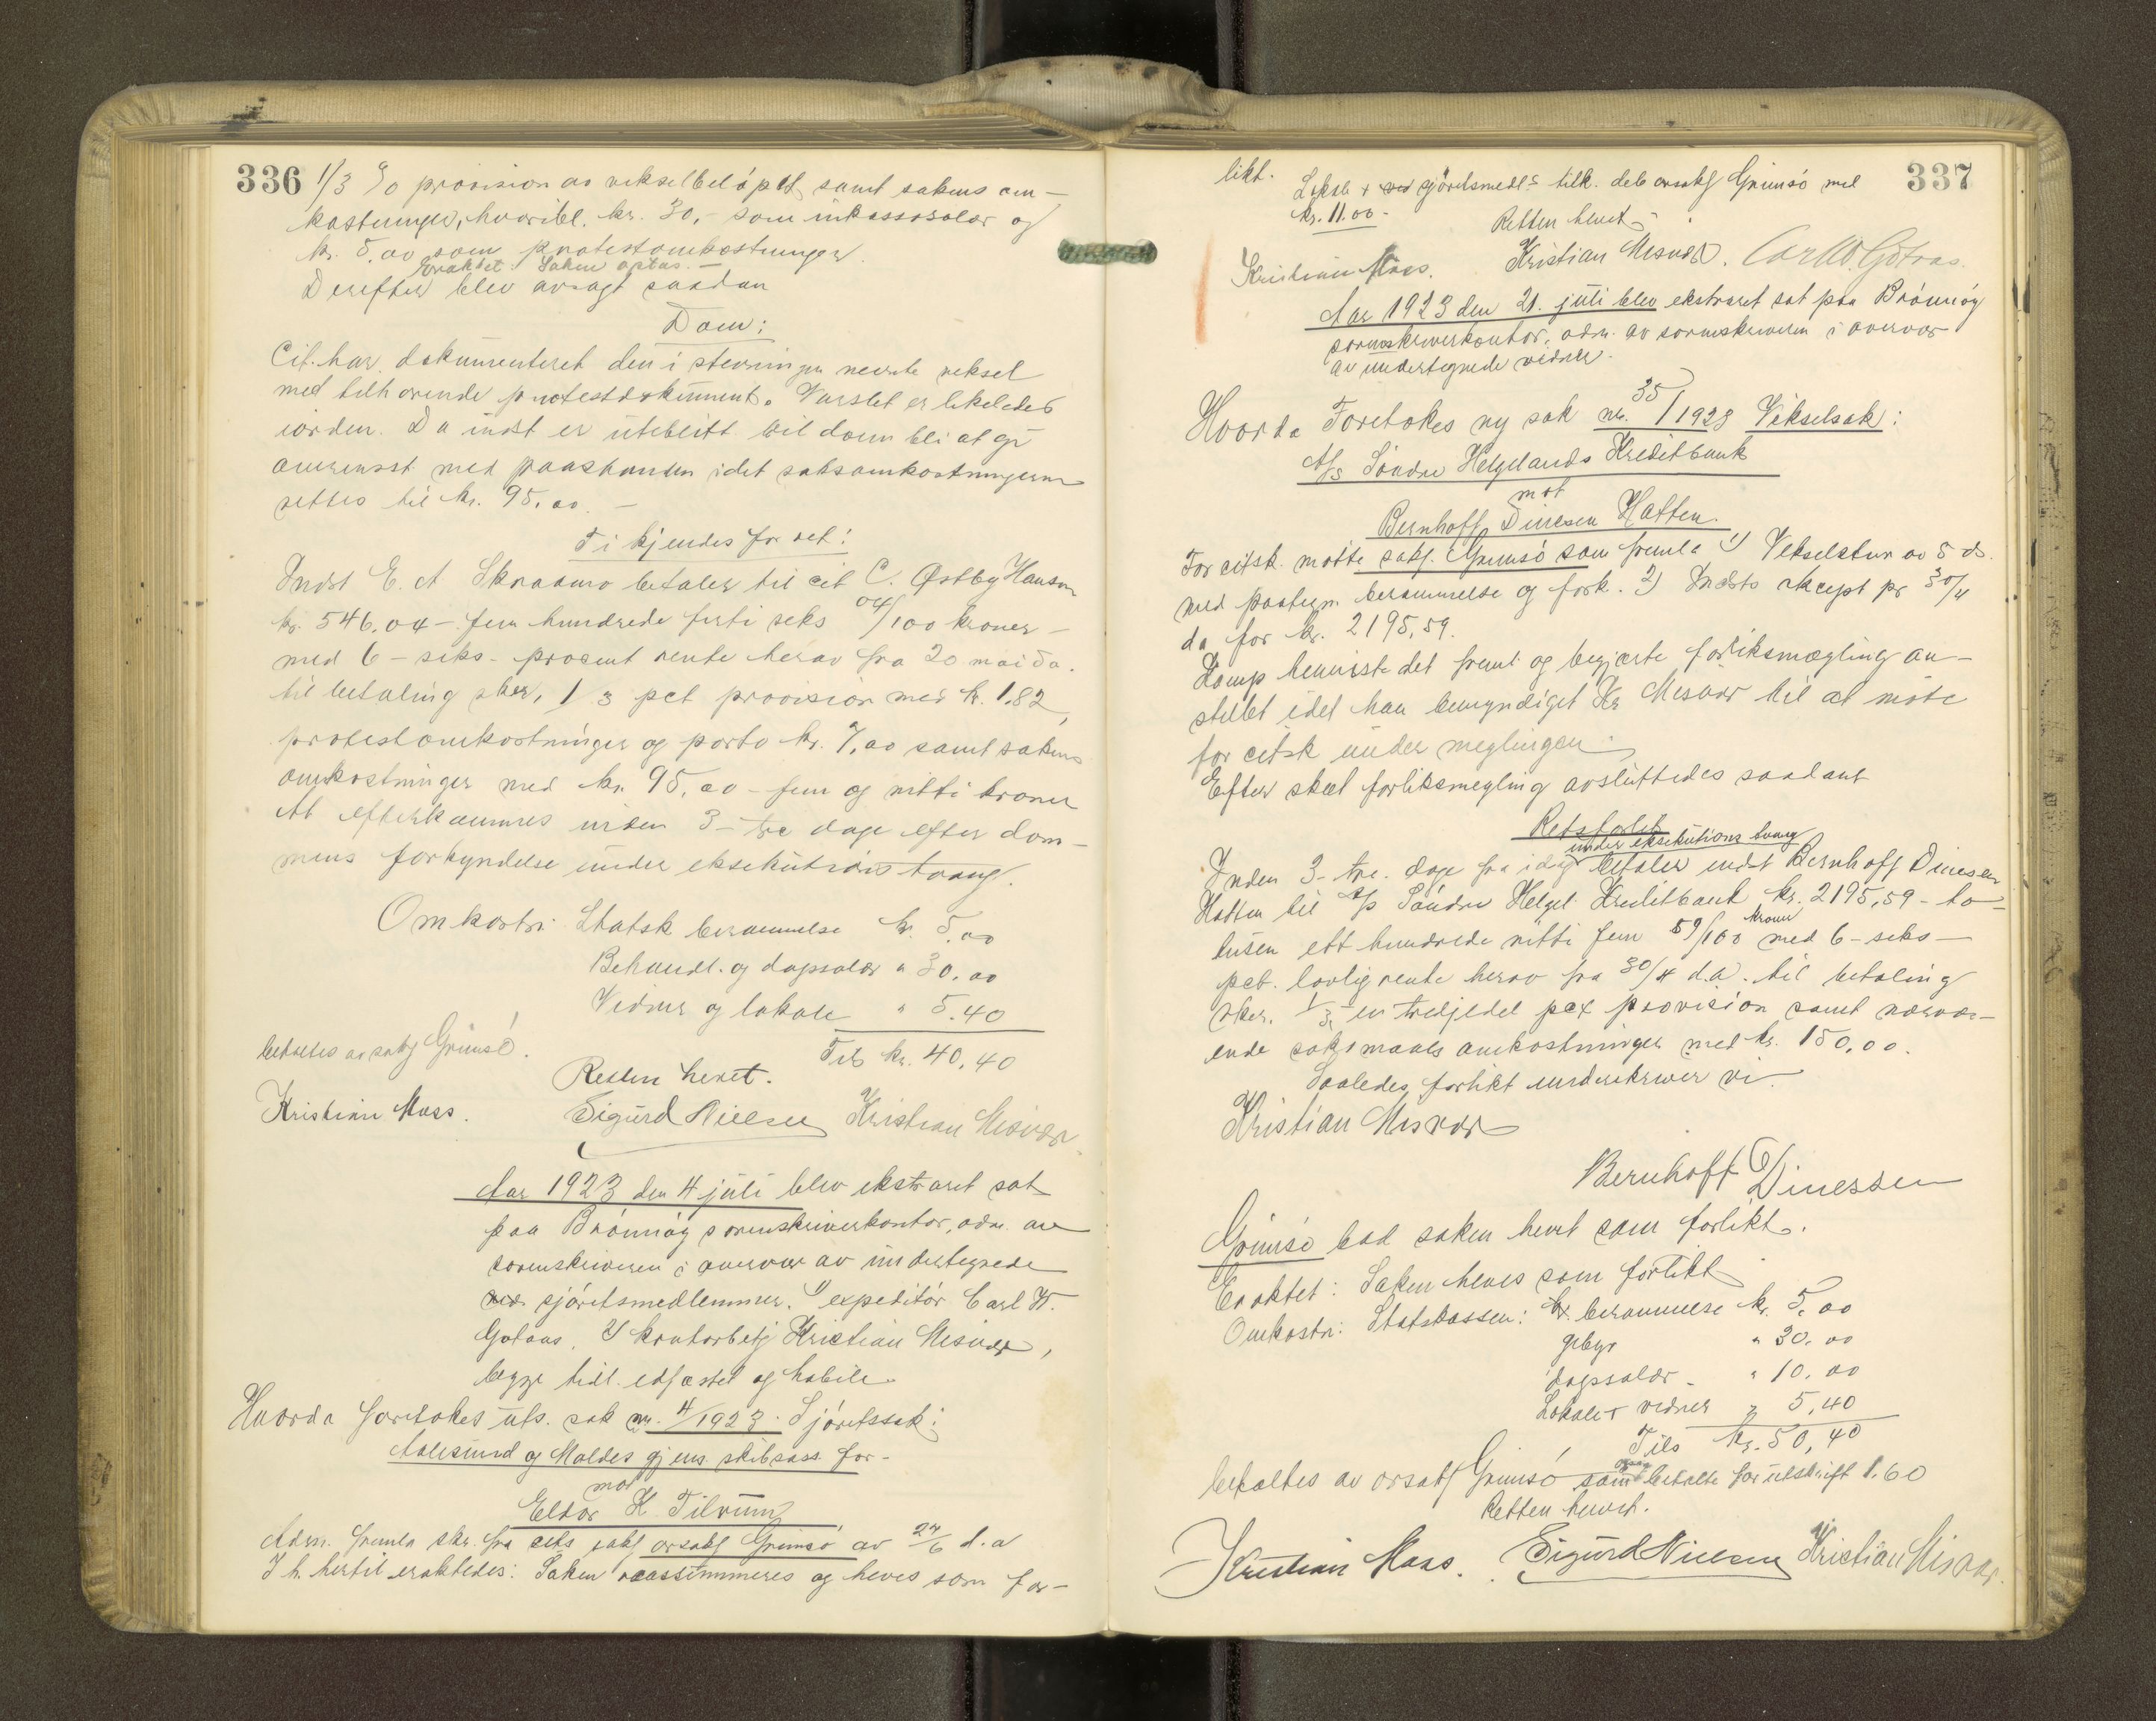 336
1/3 % provision av vekselbeløpet samt sakens om-
kostninger, hvoribl. kr. 30,- som inkassosalær og
kr. 5,00 som protestomkostninger
Eraktet: Saken optas. -
Derefter blev avsagt saadan
Dom:
Cit. har dokumenteret den i stevningen nevnte veksel
med tilhørende protestdokument. Varslet er likeledes
iorden. Da indst er uteblitt vil dom bli at gi
overensst. med paastanden idet saksomkostningerne
settes til kr. 95,00. -
Ti kjendes for ret:
Indst E. A Skraamo betaler til cit C. Østby Hansen
kr. 546,04 - fem hundrede førti seks 04/100 kroner -
med 6 - seks - procent rente herav fra 20 mai da.
til betaling sker, 1/3 pct provision med kr. 1,82,
protestomkostninger og porto kr. 7,00 samt sakens
omkostninger med kr. 95,00 - fem og nitti kroner
At efterkommes inden 3 - tre dage efter dom-
mens forkyndelse under eksekutionstvang.
Omkostn: Statsk berammelse kr. 5,00
Behandl. og dagsalær " 30,00
Vidner og lokale " 5.40
Tils kr. 40,40
betaltes av sakf Grimsø.
Retten hevet.
Kristian Maas. Sigurd Nielsen Kristian Misvær
Aar 1923 den 4 juli blev ekstraret sat
paa Brønnøy sorenskriverkontor, adm. av
sorenskriveren i overvær av undertegnede
sjøretsmedlemmer. 1) expeditør Carl W.
Gotaas, 2) kontorbetj Kristian Misvær,
begge tidl. edfæstet og habile
Hvorda foretokes uts. sak nr. 4/1923. Sjøretssak:
Aalesund og Moldes gjens. skibsass. for-
mot
Eldor H Tilrum
Adm. fremla skr. fra cits sakf orsakf Grimsø av 27/6 d.a
I h. hertil eraktedes: Saken reassummeres og heves som for-
337
likt.
Lokale + sjøretsmedl.s tilk. deb orsakf Grimsø med
kr. 11.00 -
Retten hevet -
Kristian Maas. Kristian Misvær. Carl W. Gotaas.
Aar 1923 den 21. juli blev ekstraret sat paa Brønnøy
sorenskriverkontor, adm. av sorenskriveren i overvær
av undertegnede vidner.
Hvorda Foretokes ny sak nr. 35/1923 Vekselsak:
A/s Søndre Helgelands Kreditbank
mot
Bernhoff Dinesen Hatten.
For citsk. møtte sakf. Grimsø som fremla 1) Vekselstevn av 5 ds.
med paategn. berammelse og fork. 2) Indsts akcept pr 30/4
da for kr. 2195,59.
Komp henviste det freml og begjærte forliksmægling an-
stillet idet han bemyndiget Kr Misvær til at møte
for citsk under meglingen.
Efter skeet forliksmegling avsluttedes saadant
Retsforlik
under eksekutions tvang
Inden 3 - tre. dage fra idag betaler indst Bernhoff Dinesen
Hatten til A/s Søndre Helgel. Kreditbank kr. 2195,59 - to-
tusen ett hundrede nitti fem 59/100 kroner med 6 - seks -
pct. lovlig rente herav fra 30/4 d.a. til betaling
sker. 1/3 - en tredjedel pct provision samt nærvær-
ende saksmaals omkostninger med kr. 150,00.
Saaledes forlikt underskriver vi.
Kristian Misvær
Bernhoff Dinessen
Grimsø bad saken hevet som forlikt.
Eraktet: Saken heves som forlikt
Omkostn: Statskassen: berammelse kr. 5,00
gebyr " 30,00
dagsalær - " 10,00
Lokale + vidner " 5,40
Tils kr. 50,40
betaltes av orsakf Grimsø som betalte for utskrift 1.60
Retten hevet.
Kristian Maas. Sigurd Nielsen Kristian Misvær.